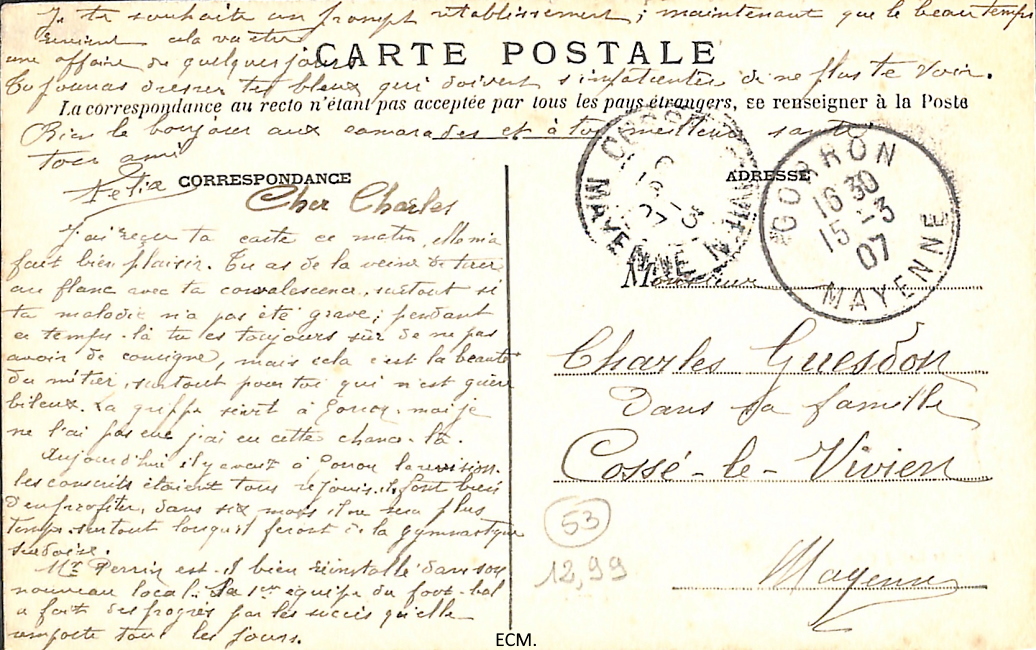 Je te souhaite un prompt rétablissement ; maintenant que le beau temps
revient cela va être
une affaire de quelques jours
CARTE POSTALE
Tu pourras dresser tes bleux qui doivent s'impatienter de ne plus te voir.
La correspondance au recto n'étant pas acceptée par tous les pays étrangers, se renseigner à la Poste
Bien le bonjour aux camarades et à toi meilleure santé
ton ami
Felix
CORRESPONDANCE
Cher Charles
J'ai reçu ta carte ce matin, elle m'a
fait bien plaisir. Tu as de la veine de tirer
au flanc avec ta convalescence, surtout si
ta maladie n'a pas été grave ; pendant
ce temps-là tu es toujours sûr de ne pas
avoir de consigne, mais cela c'est la beauté
du métier, surtout pour toi qui n'est guère
bileux. La grippe sévit à Gorron mais je
ne l'ai pas eue j'ai eu cette chance-là.
Aujourd'hui il y avait à Gorron la revision.
les conscrits étaient tous réjouis, ils font bien
d'en profiter, dans six mois il ne sera plus
temps surtout lorsqu'il feront de la gymnastique
suédoise.
Mr Perrin est-il bien réinstallé dans son
nouveau local. La 1re équipe du foot-bal
a fait des progrès par les succès qu'elle
remporte tous les jours.
ADRESSE
GORRON
16 30
15 -3
07
MAYENNE
Monsieur
Charles Guesdon
Dans sa famille
Cossé-le-Vivien
Mayenne
53
12,99
ECM.